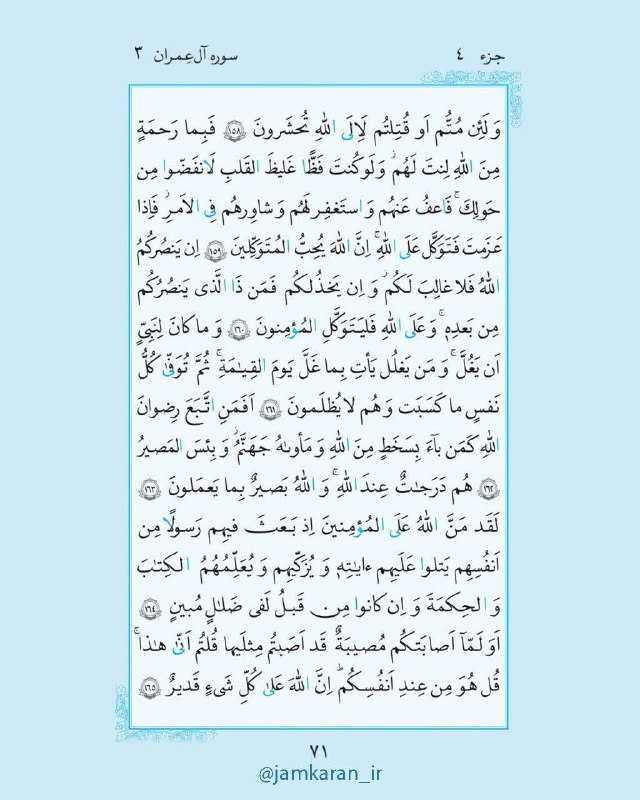 جزء ٤
سوره آل عِمران ٣
وَلَئِن مُتُّم اَو قُتِلتُم لَاِلَى اللهِ تُحشَرونَ ﴿١٥٨﴾ فَبِما رَحمَةٍ
مِنَ اللهِ لِنتَ لَهُم ۖ وَلَو كُنتَ فَظًّا غَليظَ القَلبِ لَانفَضّوا مِن
حَولِكَ ۖ فَاعفُ عَنهُم وَاستَغفِر لَهُم وَشاوِرهُم فِى الاَمرِ ۖ فَاِذا
عَزَمتَ فَتَوَكَّل عَلَى اللهِ ۚ اِنَّ اللهَ يُحِبُّ المُتَوَكِّلينَ ﴿١٥٩﴾ اِن يَنصُركُمُ
اللهُ فَلا غالِبَ لَكُم ۖ وَاِن يَخذُلكُم فَمَن ذَا الَّذى يَنصُرُكُم
مِن بَعدِهٖ ۗ وَعَلَى اللهِ فَليَتَوَكَّلِ المُؤمِنونَ ﴿١٦٠﴾ وَما كانَ لِنَبِىٍّ
اَن يَغُلَّ ۚ وَمَن يَغلُل يَأتِ بِما غَلَّ يَومَ القِيٰمَةِ ۚ ثُمَّ تُوَفّىٰ كُلُّ
نَفسٍ ما كَسَبَت وَهُم لا يُظلَمونَ ﴿١٦١﴾ اَفَمَنِ اتَّبَعَ رِضوانَ
اللهِ كَمَن بآءَ بِسَخَطٍ مِنَ اللهِ وَمَأوىٰهُ جَهَنَّمُ ۚ وَبِئسَ المَصيرُ
﴿١٦٢﴾ هُم دَرَجٰتٌ عِندَ اللهِ ۗ وَاللهُ بَصيرٌ بِما يَعمَلونَ ﴿١٦٣﴾
لَقَد مَنَّ اللهُ عَلَى المُؤمِنينَ اِذ بَعَثَ فيهِم رَسولًا مِن
اَنفُسِهِم يَتلوا عَلَيهِم ءايٰتِهٖ وَيُزَكّيهِم وَيُعَلِّمُهُمُ الكِتٰبَ
وَالحِكمَةَ وَاِن كانوا مِن قَبلُ لَفى ضَلٰلٍ مُبينٍ ﴿١٦٤﴾
اَوَلَمّآ اَصابَتكُم مُصيبَةٌ قَد اَصَبتُم مِثلَيها قُلتُم اَنّىٰ هٰذا ۖ
قُل هُوَ مِن عِندِ اَنفُسِكُم ۗ اِنَّ اللهَ عَلىٰ كُلِّ شَىءٍ قَديرٌ ﴿١٦٥﴾
٧١
@jamkaran_ir